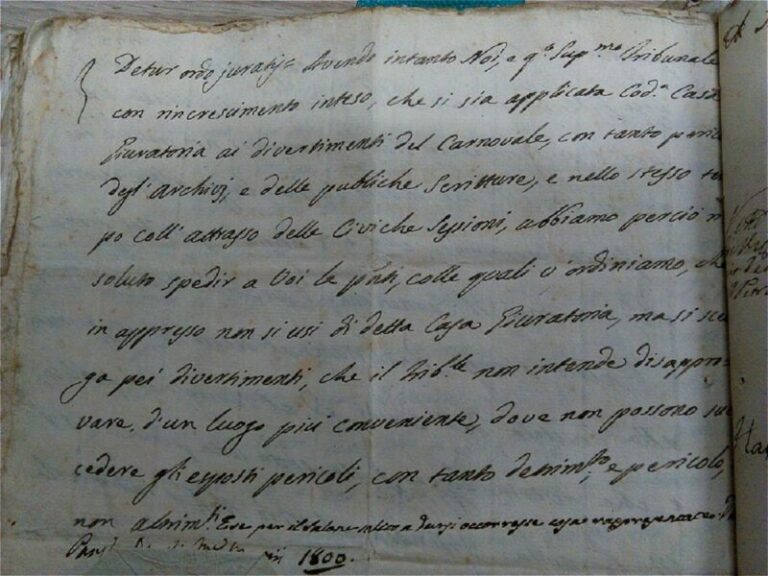 Detur ordo juratis= Avendo intanto Noi, e q.to Sup.mo Tribunale
con rincrescimento inteso, che si sia applicata Cod.a Casa
Giuratoria ai divertimenti del Carnovale, con tanto peric
degl' Archivj, e delle publiche Scritture, e nello stesso te
po coll' attrasso delle Civiche Sessioni, abbiamo perciò ri
soluto spedir a Voi le pñti, colle quali v' ordiniamo, che
in appresso non si usi di detta Casa Giuratoria, ma si scel
ga pei divertimenti, che il Trib.le non intende disappro-
vare, d'un luogo più conveniente, dove non possono suc
cedere gli esposti pericoli, con tanto detrim.to, e pericolo,
non altrim.ti E se per il occorresse cosa rappresentare
in 1800.